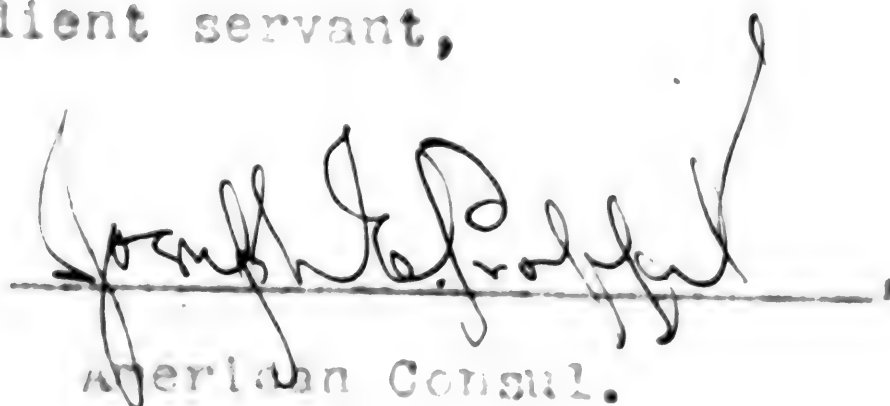 lient servant,
Joseph E. Proffit
American Consul.